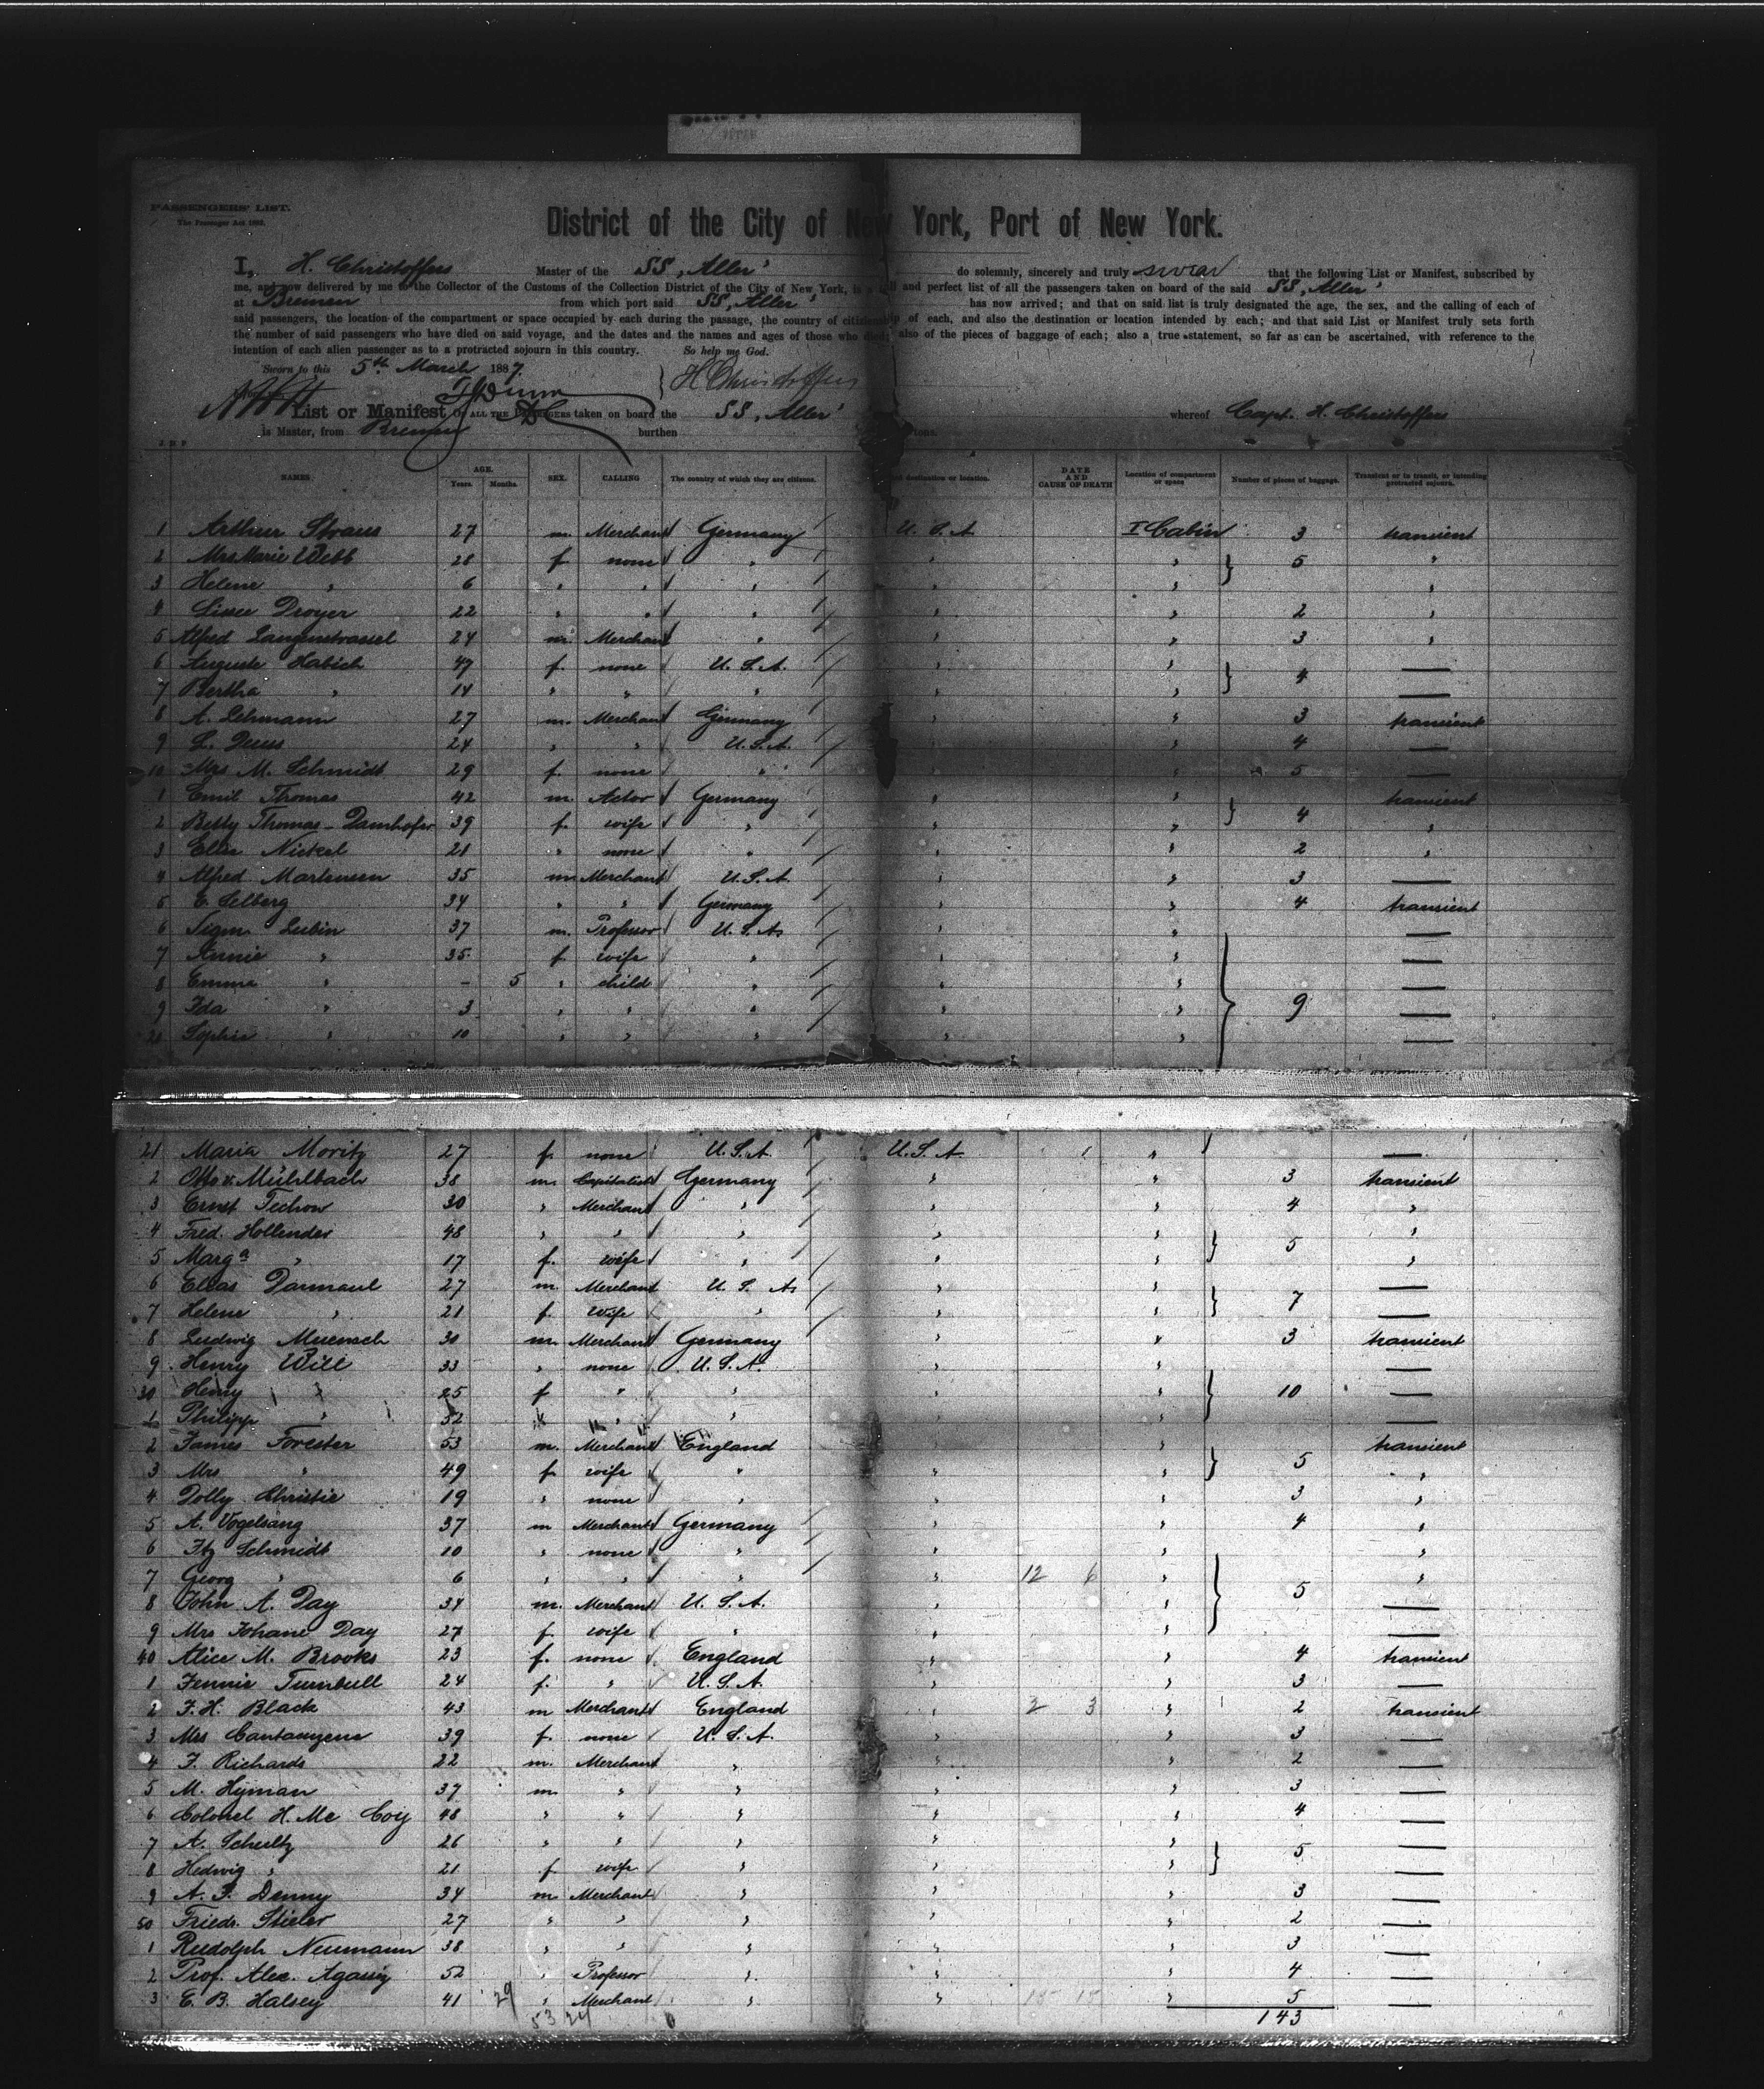 PASSENGERS' LIST.
The Passenger Act 1882.
District of the City of New York, Port of New York.
I, H. Christoffers Master of the SS „Aller" do solemnly, sincerely and truly swear that the following List or Manifest, subscribed by
me, and now delivered by me to the Collector of the Customs of the Collection District of the City of New York, is a full and perfect list of all the passengers taken on board of the said SS „Aller"
at Bremen from which port said SS „Aller" has now arrived; and that on said list is truly designated the age, the sex, and the calling of each of
said passengers, the location of the compartment or space occupied by each during the passage, the country of citizenship of each, and also the destination or location intended by each; and that said List or Manifest truly sets forth
the number of said passengers who have died on said voyage, and the dates and the names and ages of those who died; also of the pieces of baggage of each; also a true statement, so far as can be ascertained, with reference to the
intention of each alien passenger as to a protracted sojourn in this country. So help me God.
Sworn to this 5th March 1887. H Christoffers
List or Manifest OF ALL THE PASSENGERS taken on board the SS „Aller" whereof Capt. H. Christoffers
is Master, from Bremen burthen tons.
NAMES AGE. Years. Months. SEX. CALLING The country of which they are citizens. destination or location. DATE AND CAUSE OF DEATH Location of compartment or space Number of pieces of baggage. Transient or in transit, or intending protracted sojourn.
1 Arthur Straus 27 m. Merchant Germany U. S. A I Cabin 3 transient
2 Mrs Marie Webb 28 f. none " " " } 5 "
3 Helene " 6 " " " " "
4 Liller Droyer 22 " " " " " 2 "
5 Alfred Langenstrassel 24 m. Merchant " " " 3 "
6 Auguste Habich 49 f. none U. S. A. " " } 4 —
7 Bertha " 14 " " " " " —
8 A. Lehmann 27 m. Merchant Germany " " 3 transient
9 L. Duess 24 " " U. S. A. " " 4 —
10 Mrs M. Schmidt 29 f. none " " " 5 —
1 Emil Thomas 42 m. Actor Germany " " } 4 transient
2 Betty Thomas-Damhofer 39 f. wife " " " "
3 Elise Nickel 21 " none " " " 2 "
4 Alfred Martensen 35 m Merchant U. S. A. " " 3 —
5 E. Selberg 34 " " Germany " " 4 transient
6 Sigm. Lubin 37 m. Professor U. S. A. " " —
7 Annie " 35 f wife " " " —
8 Emma " – 5 " child " " " —
9 Ida " 3 " " " " " 9 —
20 Sophie " 10 " " " " " —
21 Maria Moritz 27 f. none U. S. A. U. S. A. " —
2 Otto v. Mühlbach 38 m. Capitalist Germany " " 3 transient
3 Ernst Techow 30 " Merchant " " " 4 "
4 Fred. Hollender 48 " " " " " } 5 "
5 Marga " 17 f. wife " " " "
6 Elias Darmaul 27 m Merchant U. S. A. " " } 7 —
7 Helene " 21 f. wife " " " —
8 Ludwig Muensch 30 m. Merchant Germany " " 3 transient
9 Henry Will 33 " none U. S. A. " " —
30 Henny " 25 f " " " " } 10 —
1 Philipp " 52 " " " " —
2 James Forester 53 m. Merchant England " " } 5 transient
3 Mrs " 49 f wife " " " "
4 Dolly Christie 19 " none " " " 3 "
5 A. Vogelsang 37 m Merchant Germany " " 4 "
6 Ftz Schmidt 10 " none " " " "
7 Georg " 6 " " " " 12 6 " "
8 John A. Day 34 m. Merchant U. S. A. " " 5 —
9 Mrs Johane Day 27 f. wife " " " —
40 Alice M. Brooks 23 f. none England " " 4 transient
1 Jennie Turnbull 24 f. " U. S. A. " " 3 —
2 F. H. Black 43 m Merchant England " 2 3 " 2 transient
3 Mrs 39 f. none U. S. A. " " 3 —
4 F. Richards 22 m. Merchant " " " 2 —
5 M. Hyman 37 m. " " " " 3 —
6 Colonel H. Mc Coy 48 " " " " " 4 —
7 A. Schultz 26 " " " " " } 5 —
8 Hedwig " 21 f wife " " " —
9 A. F. Denny 34 m Merchant " " " 3 —
50 Friedr. Stieler 27 " " " " " 2 —
1 Rudolph Neumann 38 " " " " " 3 —
2 Prof. Alex. Agassiz 52 " Professor " " " 4 —
3 E. B. Halsey 41 " Merchant " " " 5 —
29 53 24 143